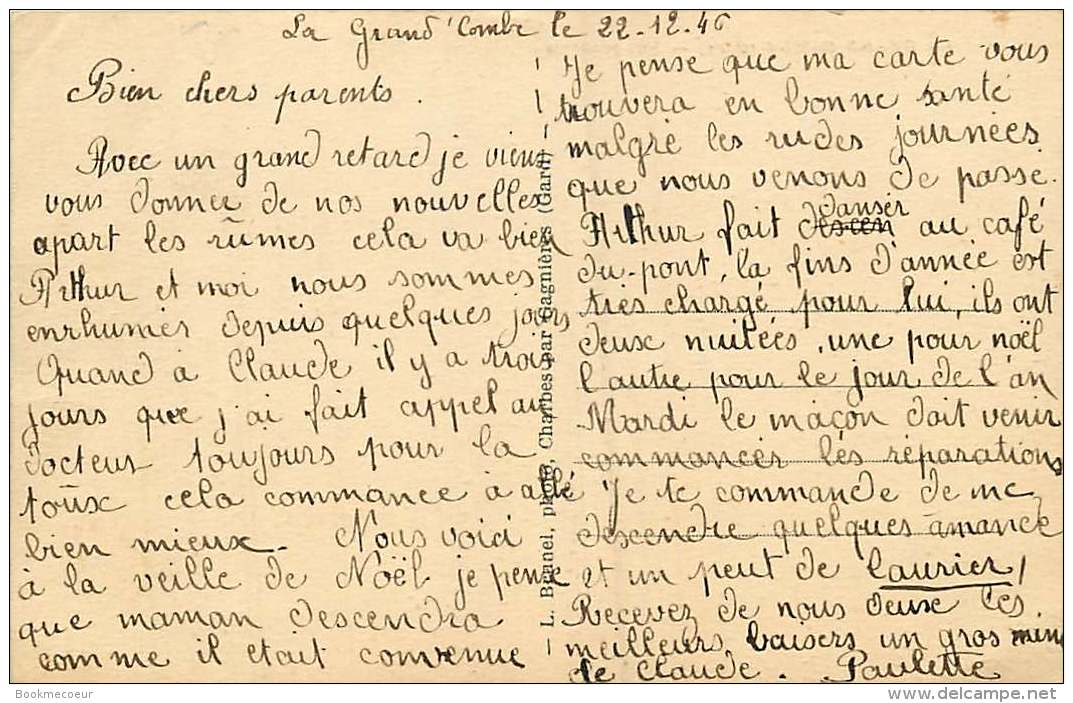 La Grand'Combe le 22-12-46
Bien chers parents.
Avec un grand retard je viens
vous donner de nos nouvelles
apart les rûmes cela va bien
Arthur et moi nous sommes
enrhumés depuis quelques jours
Quand à Claude il y a trois
jours que j'ai fait appel au
docteur toujours pour la
toûx cela commance à allé
bien mieux. Nous voici
à la veille de Noël je pense
que maman descendra
comme il était convenue
L. Brunel, photo, Charbes par Gagnières (Gard)
Je pense que ma carte vous
trouvera en bonne santé
malgré les rudes journées
que nous venons de passe.
Arthur fait danser au café
du-pont, la fins d'année est
très chargé pour lui, ils ont
deux nuitées, une pour noël
l'autre pour le jour de l'an
Mardi le maçon doit venir
commancer les réparations
Je te commande de me
descendre quelques amande
et un peut de laurier!
Recevez de nous deux les
meilleurs baisers un gros mimi
de Claude. Paulette
Bookmecoeur
www.delcampe.net